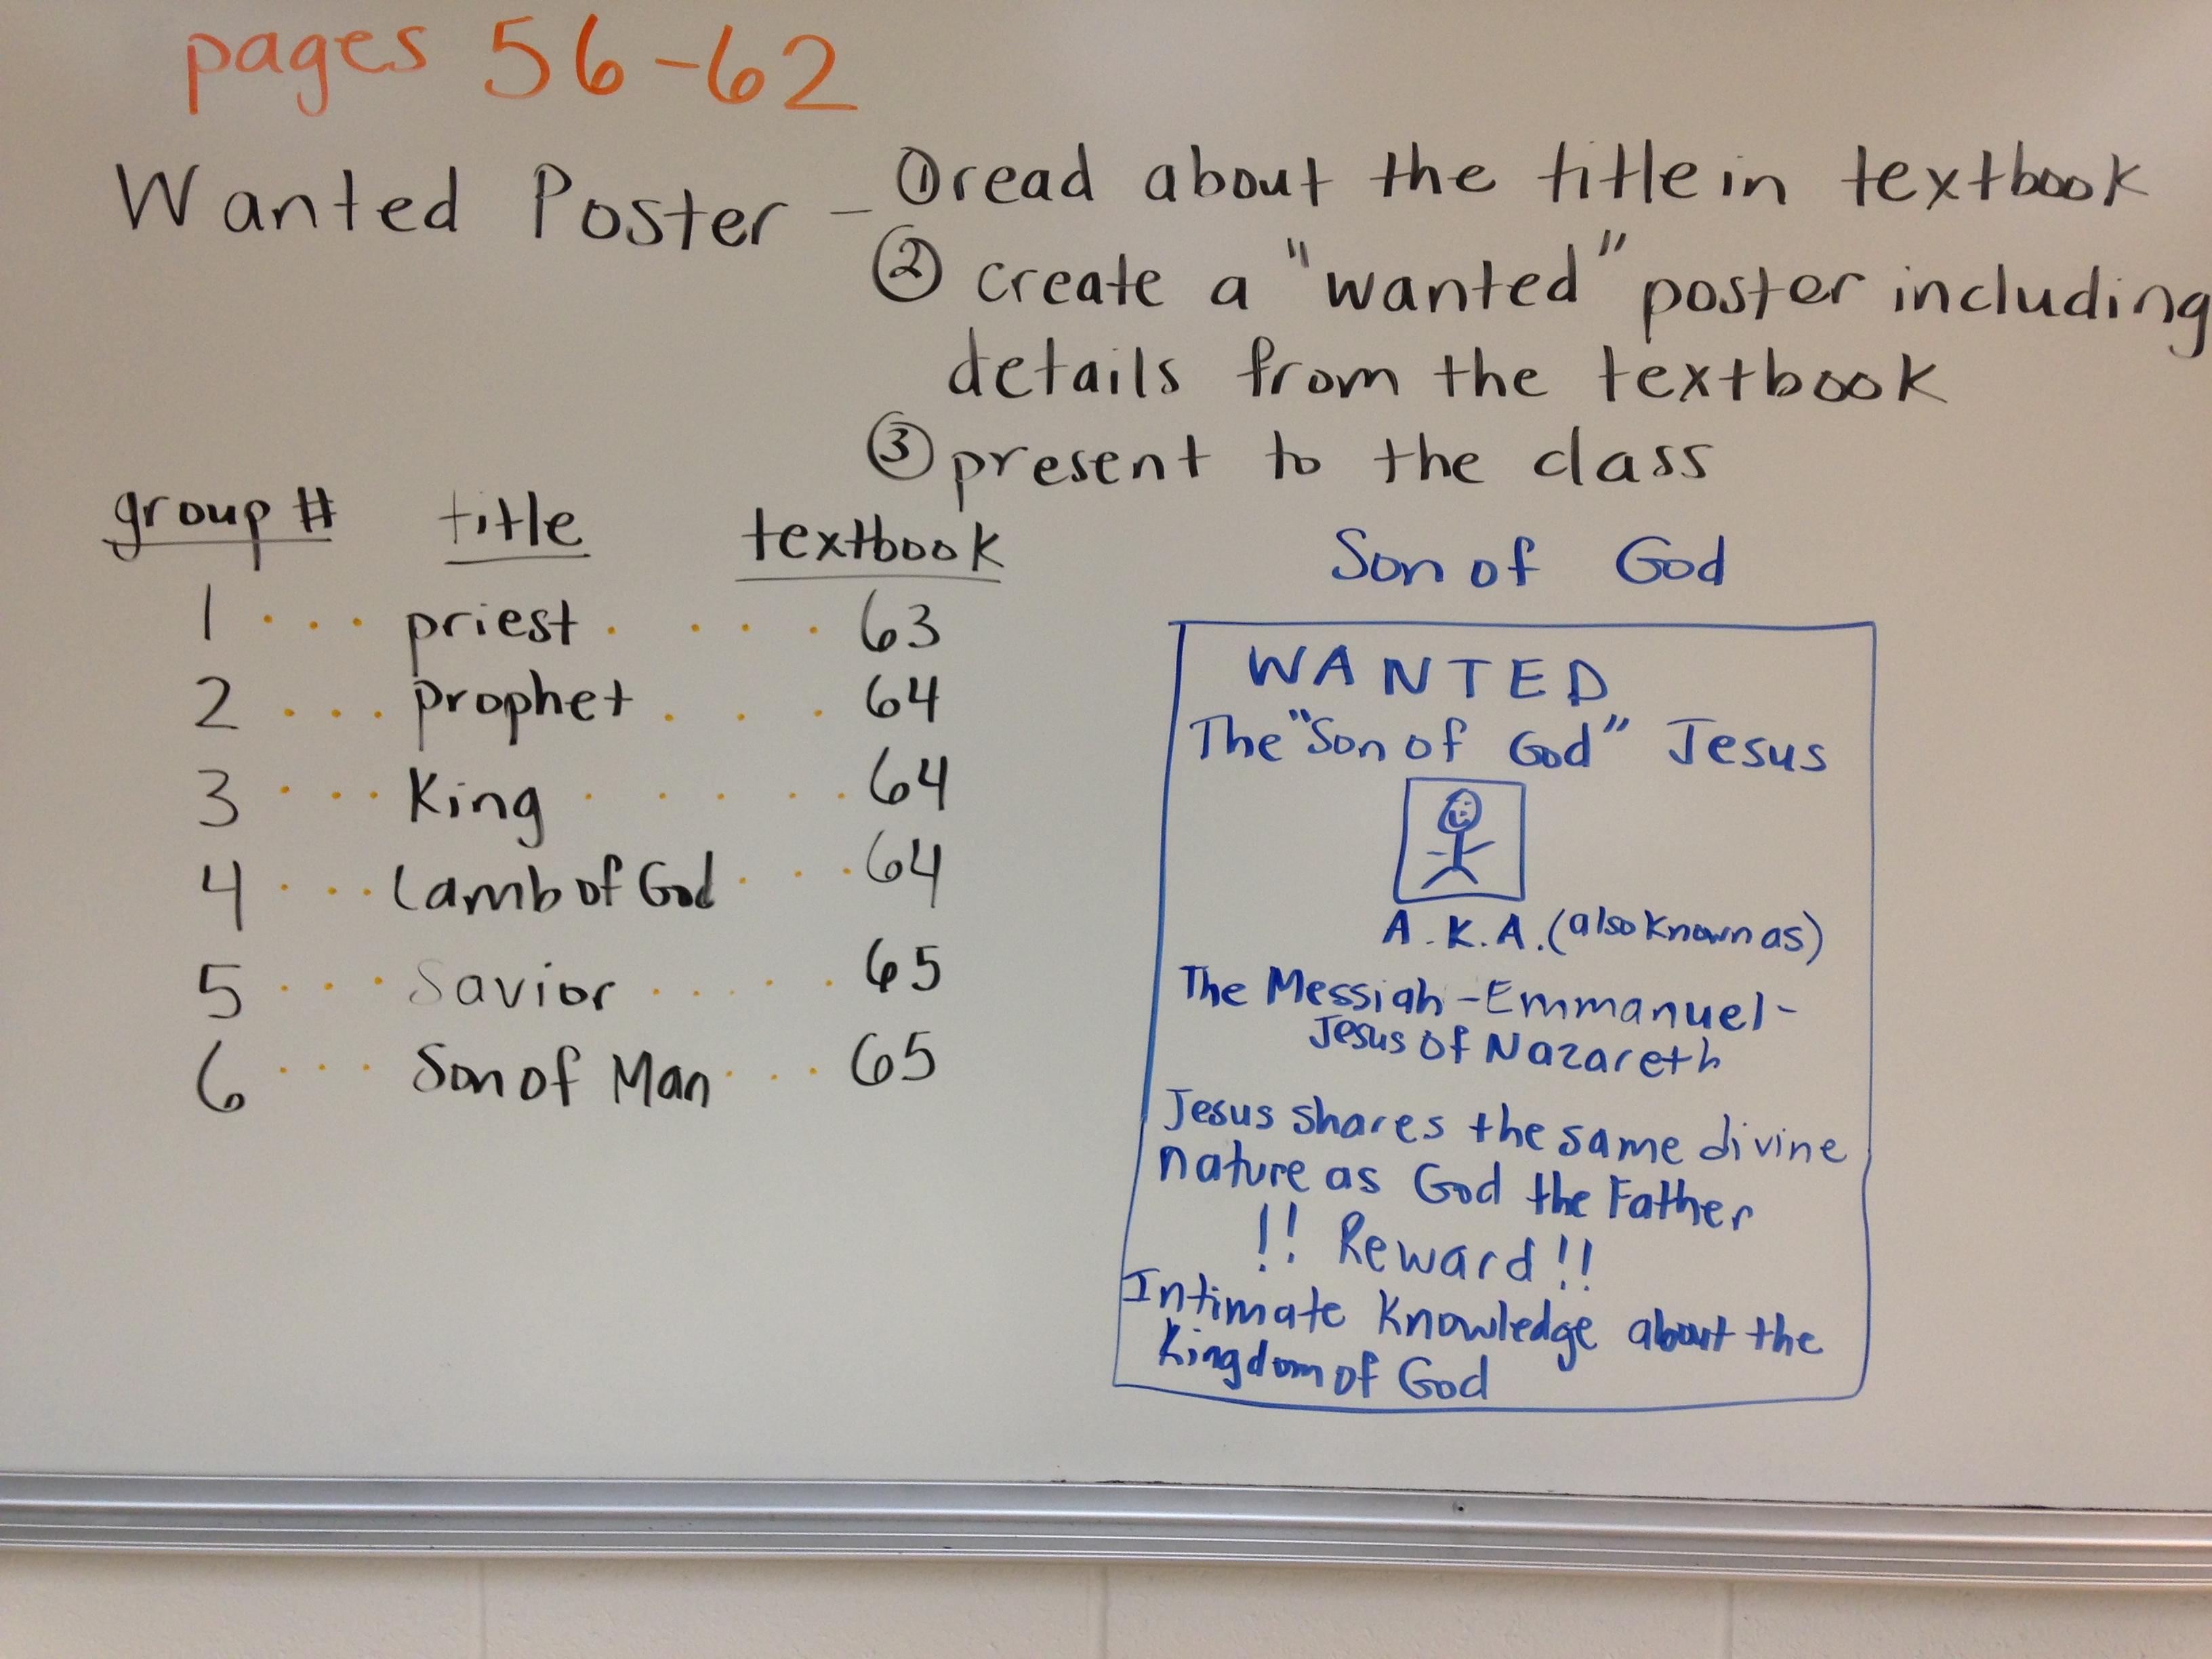 pages 56-62
Wanted Poster - ① read about the title in textbook
② create a "wanted" poster including
details from the textbook
③ present to the class
group # title textbook
1 ... priest .... 63
2 ... prophet ... 64
3 ... King ..... 64
4 ... Lamb of God ... 64
5 ... Savior ..... 65
6 ... Son of Man ... 65
Son of God
WANTED
The "Son of God" Jesus
A.K.A. (also known as)
The Messiah - Emmanuel -
Jesus of Nazareth
Jesus shares the same divine
nature as God the Father
!! Reward !!
Intimate Knowledge about the
Kingdom of God